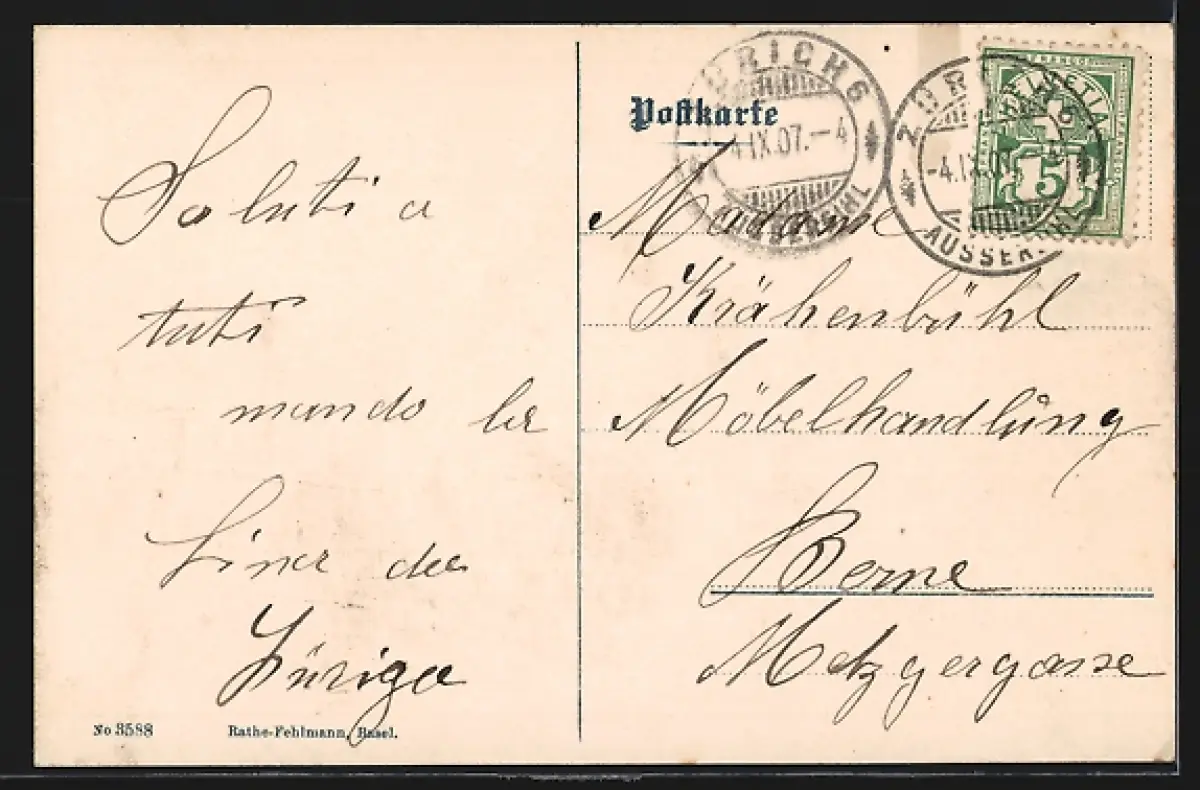 Saluti a
tuti
mando la
Lina da
Zuriga
No 3588
Rathe-Fehlmann, Basel.
Postkarte
ZÜRICH 6
4.IX.07.-4
AUSSERSIHL
ZÜRICH 6
-4.IX.07.
AUSSERSIHL
FRANCO
HELVETIA
5
Madame
Krähenbühl
Möbelhandlŭng
Berne
Metzgergasse